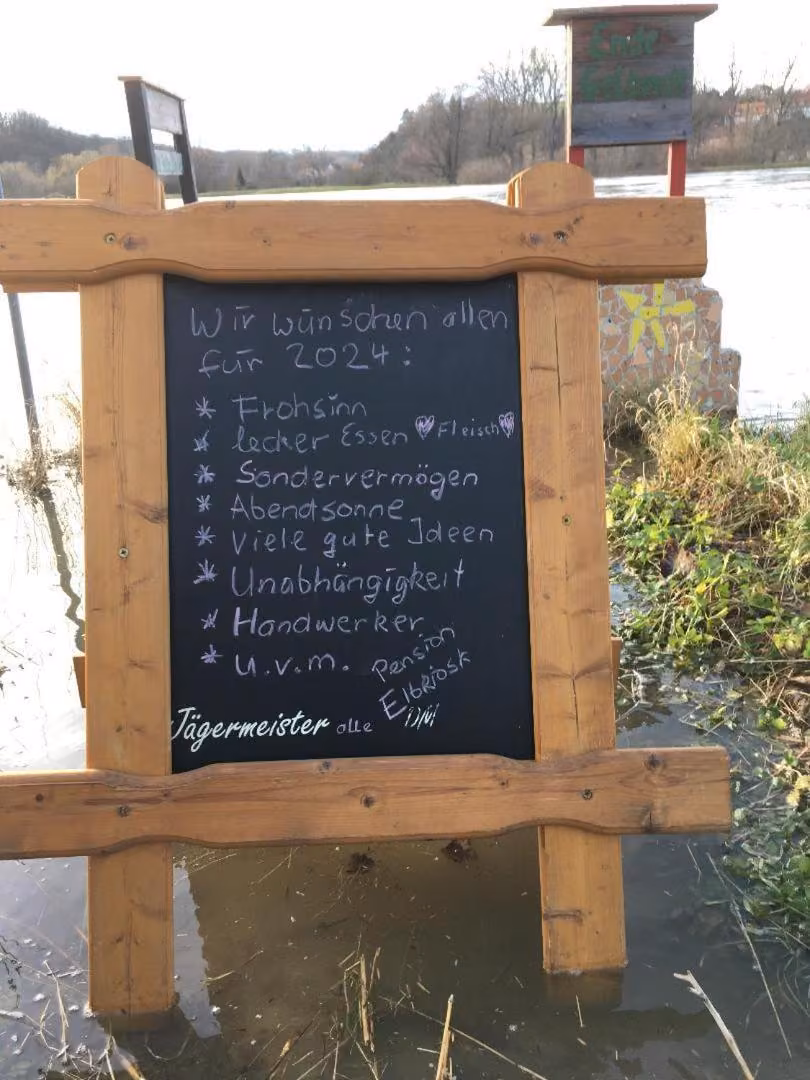 Ende
Wir wünschen allen
für 2024:
* Frohsinn
* lecker Essen ♡Fleisch♡
* Sondervermögen
* Abendsonne
* Viele gute Ideen
* Unabhängigkeit
* Handwerker
* u.v.m.
Pension
Elbkiosk
Jägermeister alle